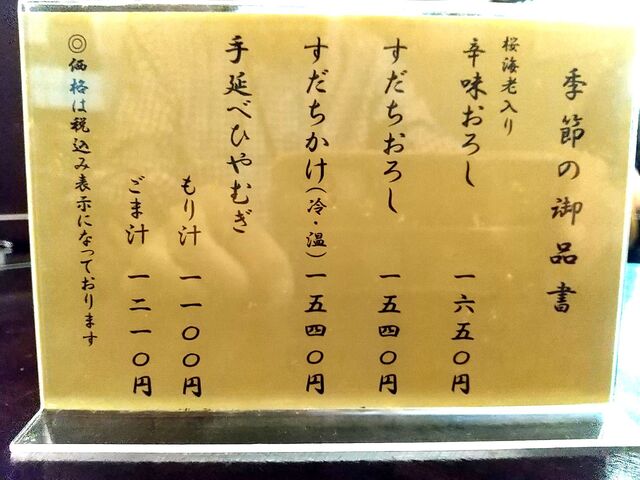 季節の御品書
桜海老入り
辛味おろし 一六五〇円
すだちおろし 一五四〇円
すだちかけ(冷・温) 一五四〇円
手延べひやむぎ
もり汁 一一〇〇円
ごま汁 一二一〇円
◎価格は税込み表示になっております